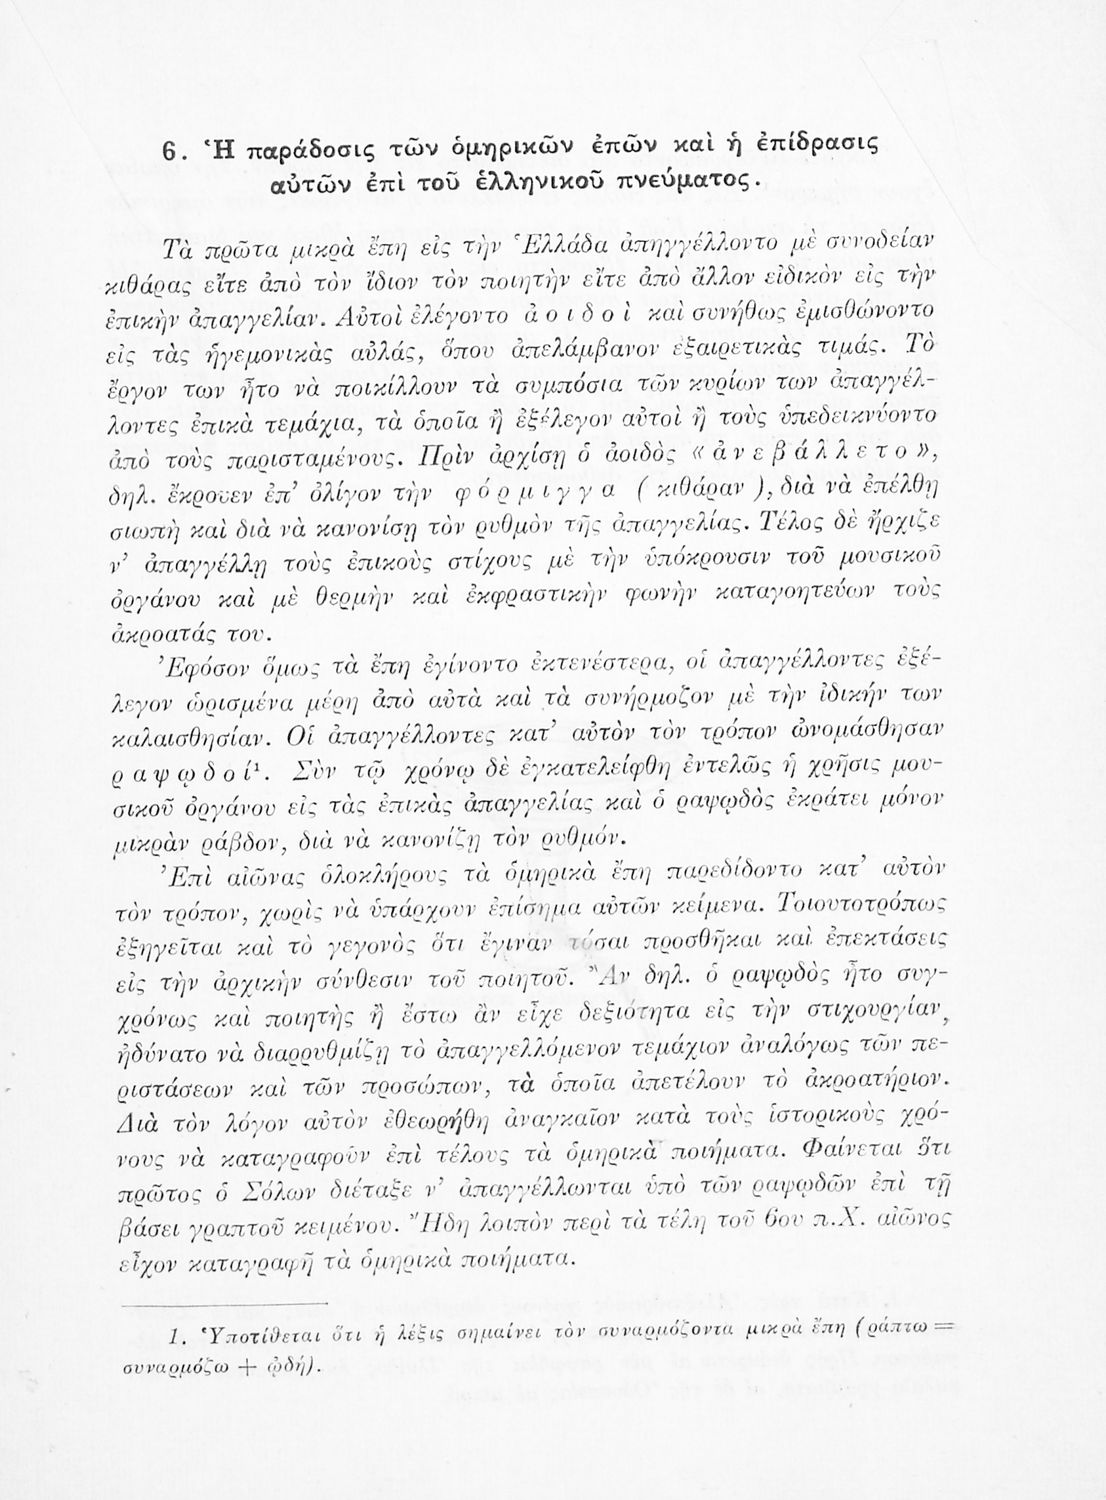 6. Ἡ παράδοσις τῶν ὁμηρικῶν ἐπῶν καὶ ἡ ἐπίδρασις
αὐτῶν ἐπὶ τοῦ ἑλληνικοῦ πνεύματος.
Τὰ πρῶτα μικρὰ ἔπη εἰς τὴν Ἑλλάδα ἀπηγγέλλοντο μὲ συνοδείαν
κιθάρας εἴτε ἀπὸ τὸν ἴδιον τὸν ποιητὴν εἴτε ἀπὸ ἄλλον εἰδικὸν εἰς τὴν
ἐπικὴν ἀπαγγελίαν. Αὐτοὶ ἐλέγοντο ἀοιδοὶ καὶ συνήθως ἐμισθώνοντο
εἰς τὰς ἡγεμονικὰς αὐλάς, ὅπου ἀπελάμβανον ἐξαιρετικὰς τιμάς. Τὸ
ἔργον των ἦτο νὰ ποικίλλουν τὰ συμπόσια τῶν κυρίων των ἀπαγγέλ-
λοντες ἐπικὰ τεμάχια, τὰ ὁποῖα ἢ ἐξέλεγον αὐτοὶ ἢ τοὺς ὑπεδεικνύοντο
ἀπὸ τοὺς παρισταμένους. Πρὶν ἀρχίσῃ ὁ ἀοιδὸς «ἀνεβάλλετο»,
δηλ. ἔκρουεν ἐπ’ ὀλίγον τὴν φόρμιγγα (κιθάραν), διὰ νὰ ἐπέλθῃ
σιωπὴ καὶ διὰ νὰ κανονίσῃ τὸν ρυθμὸν τῆς ἀπαγγελίας. Τέλος δὲ ἤρχιζε
ν’ ἀπαγγέλλῃ τοὺς ἐπικοὺς στίχους μὲ τὴν ὑπόκρουσιν τοῦ μουσικοῦ
ὀργάνου καὶ μὲ θερμὴν καὶ ἐκφραστικὴν φωνὴν καταγοητεύων τοὺς
ἀκροατάς του.
Ἐφόσον ὅμως τὰ ἔπη ἐγίνοντο ἐκτενέστερα, οἱ ἀπαγγέλλοντες ἐξέ-
λεγον ὡρισμένα μέρη ἀπὸ αὐτὰ καὶ τὰ συνήρμοζον μὲ τὴν ἰδικήν των
καλαισθησίαν. Οἱ ἀπαγγέλλοντες κατ’ αὐτὸν τὸν τρόπον ὠνομάσθησαν
ραψῳδοί¹. Σὺν τῷ χρόνῳ δὲ ἐγκατελείφθη ἐντελῶς ἡ χρῆσις μου-
σικοῦ ὀργάνου εἰς τὰς ἐπικὰς ἀπαγγελίας καὶ ὁ ραψῳδὸς ἐκράτει μόνον
μικρὰν ράβδον, διὰ νὰ κανονίζῃ τὸν ρυθμόν.
Ἐπὶ αἰῶνας ὁλοκλήρους τὰ ὁμηρικὰ ἔπη παρεδίδοντο κατ’ αὐτὸν
τὸν τρόπον, χωρὶς νὰ ὑπάρχουν ἐπίσημα αὐτῶν κείμενα. Τοιουτοτρόπως
ἐξηγεῖται καὶ τὸ γεγονὸς ὅτι ἔγιναν τόσαι προσθῆκαι καὶ ἐπεκτάσεις
εἰς τὴν ἀρχικὴν σύνθεσιν τοῦ ποιητοῦ. Ἂν δηλ. ὁ ραψῳδὸς ἦτο συγ-
χρόνως καὶ ποιητὴς ἢ ἔστω ἂν εἶχε δεξιότητα εἰς τὴν στιχουργίαν,
ἠδύνατο νὰ διαρρυθμίζῃ τὸ ἀπαγγελλόμενον τεμάχιον ἀναλόγως τῶν πε-
ριστάσεων καὶ τῶν προσώπων, τὰ ὁποῖα ἀπετέλουν τὸ ἀκροατήριον.
Διὰ τὸν λόγον αὐτὸν ἐθεωρήθη ἀναγκαῖον κατὰ τοὺς ἱστορικοὺς χρό-
νους νὰ καταγραφοῦν ἐπὶ τέλους τὰ ὁμηρικὰ ποιήματα. Φαίνεται ὅτι
πρῶτος ὁ Σόλων διέταξε ν’ ἀπαγγέλλωνται ὑπὸ τῶν ραψῳδῶν ἐπὶ τῇ
βάσει γραπτοῦ κειμένου. Ἤδη λοιπὸν περὶ τὰ τέλη τοῦ 6ου π.Χ. αἰῶνος
εἶχον καταγραφῆ τὰ ὁμηρικὰ ποιήματα.
1. Ὑποτίθεται ὅτι ἡ λέξις σημαίνει τὸν συναρμόζοντα μικρὰ ἔπη (ράπτω =
συναρμόζω + ᾠδή).